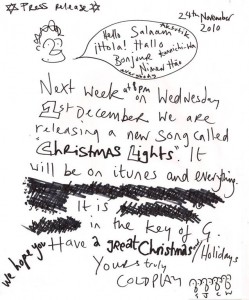 ☆ Press release ☆
24th November
2010
Hello Salaam
¡Hola! Hallo
Bonjour Konnichi-ha
Nimen Hao
everybody
Next week at 8pm on Wednesday
1st December we are
releasing a new song called
"Christmas Lights". It
will be on itunes and everything.
It is
in the key of G.
we hope you Have a great Christmas/Holidays
Yours truly
COLDPLAY